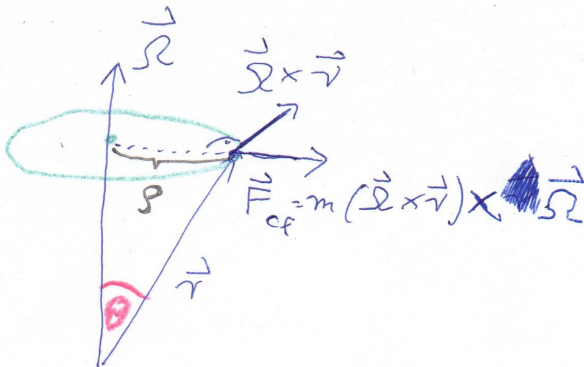 Ω⃗
Ω⃗ × r⃗
ρ
F⃗cf = m (Ω⃗ × r⃗) × Ω⃗
r⃗
θ